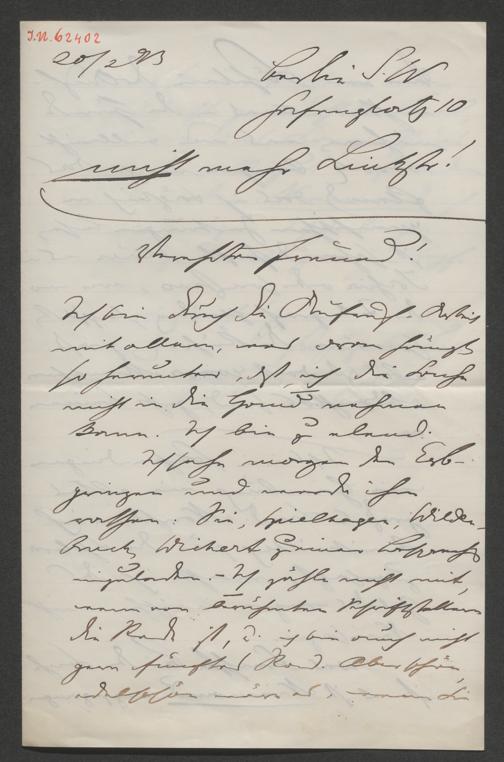 J.N. 62402
20/2 93
Berlin S.W
Hafenplatz 10
nicht mehr Linkstr!
Verehrter Freund!
Ich bin durch die Aufenth. Arbeit
mit allem, was daran hängt
so herunter, daß ich die Sache
nicht in die Hand nehmen
kann. Ich bin zu elend.
Ich sehe morgen den Erb-
prinzen und werde ihm
rathen: Sie, Spielhagen, Wilden-
bruch, Wichert zu einer Besprech
einzuladen. – Ich zähle nicht mit,
wenn von berühmten Schriftstellern
die Rede ist, u. ich bin auch nicht
gern fünftes Rad. Aber schön
wäre es, wenn Sie